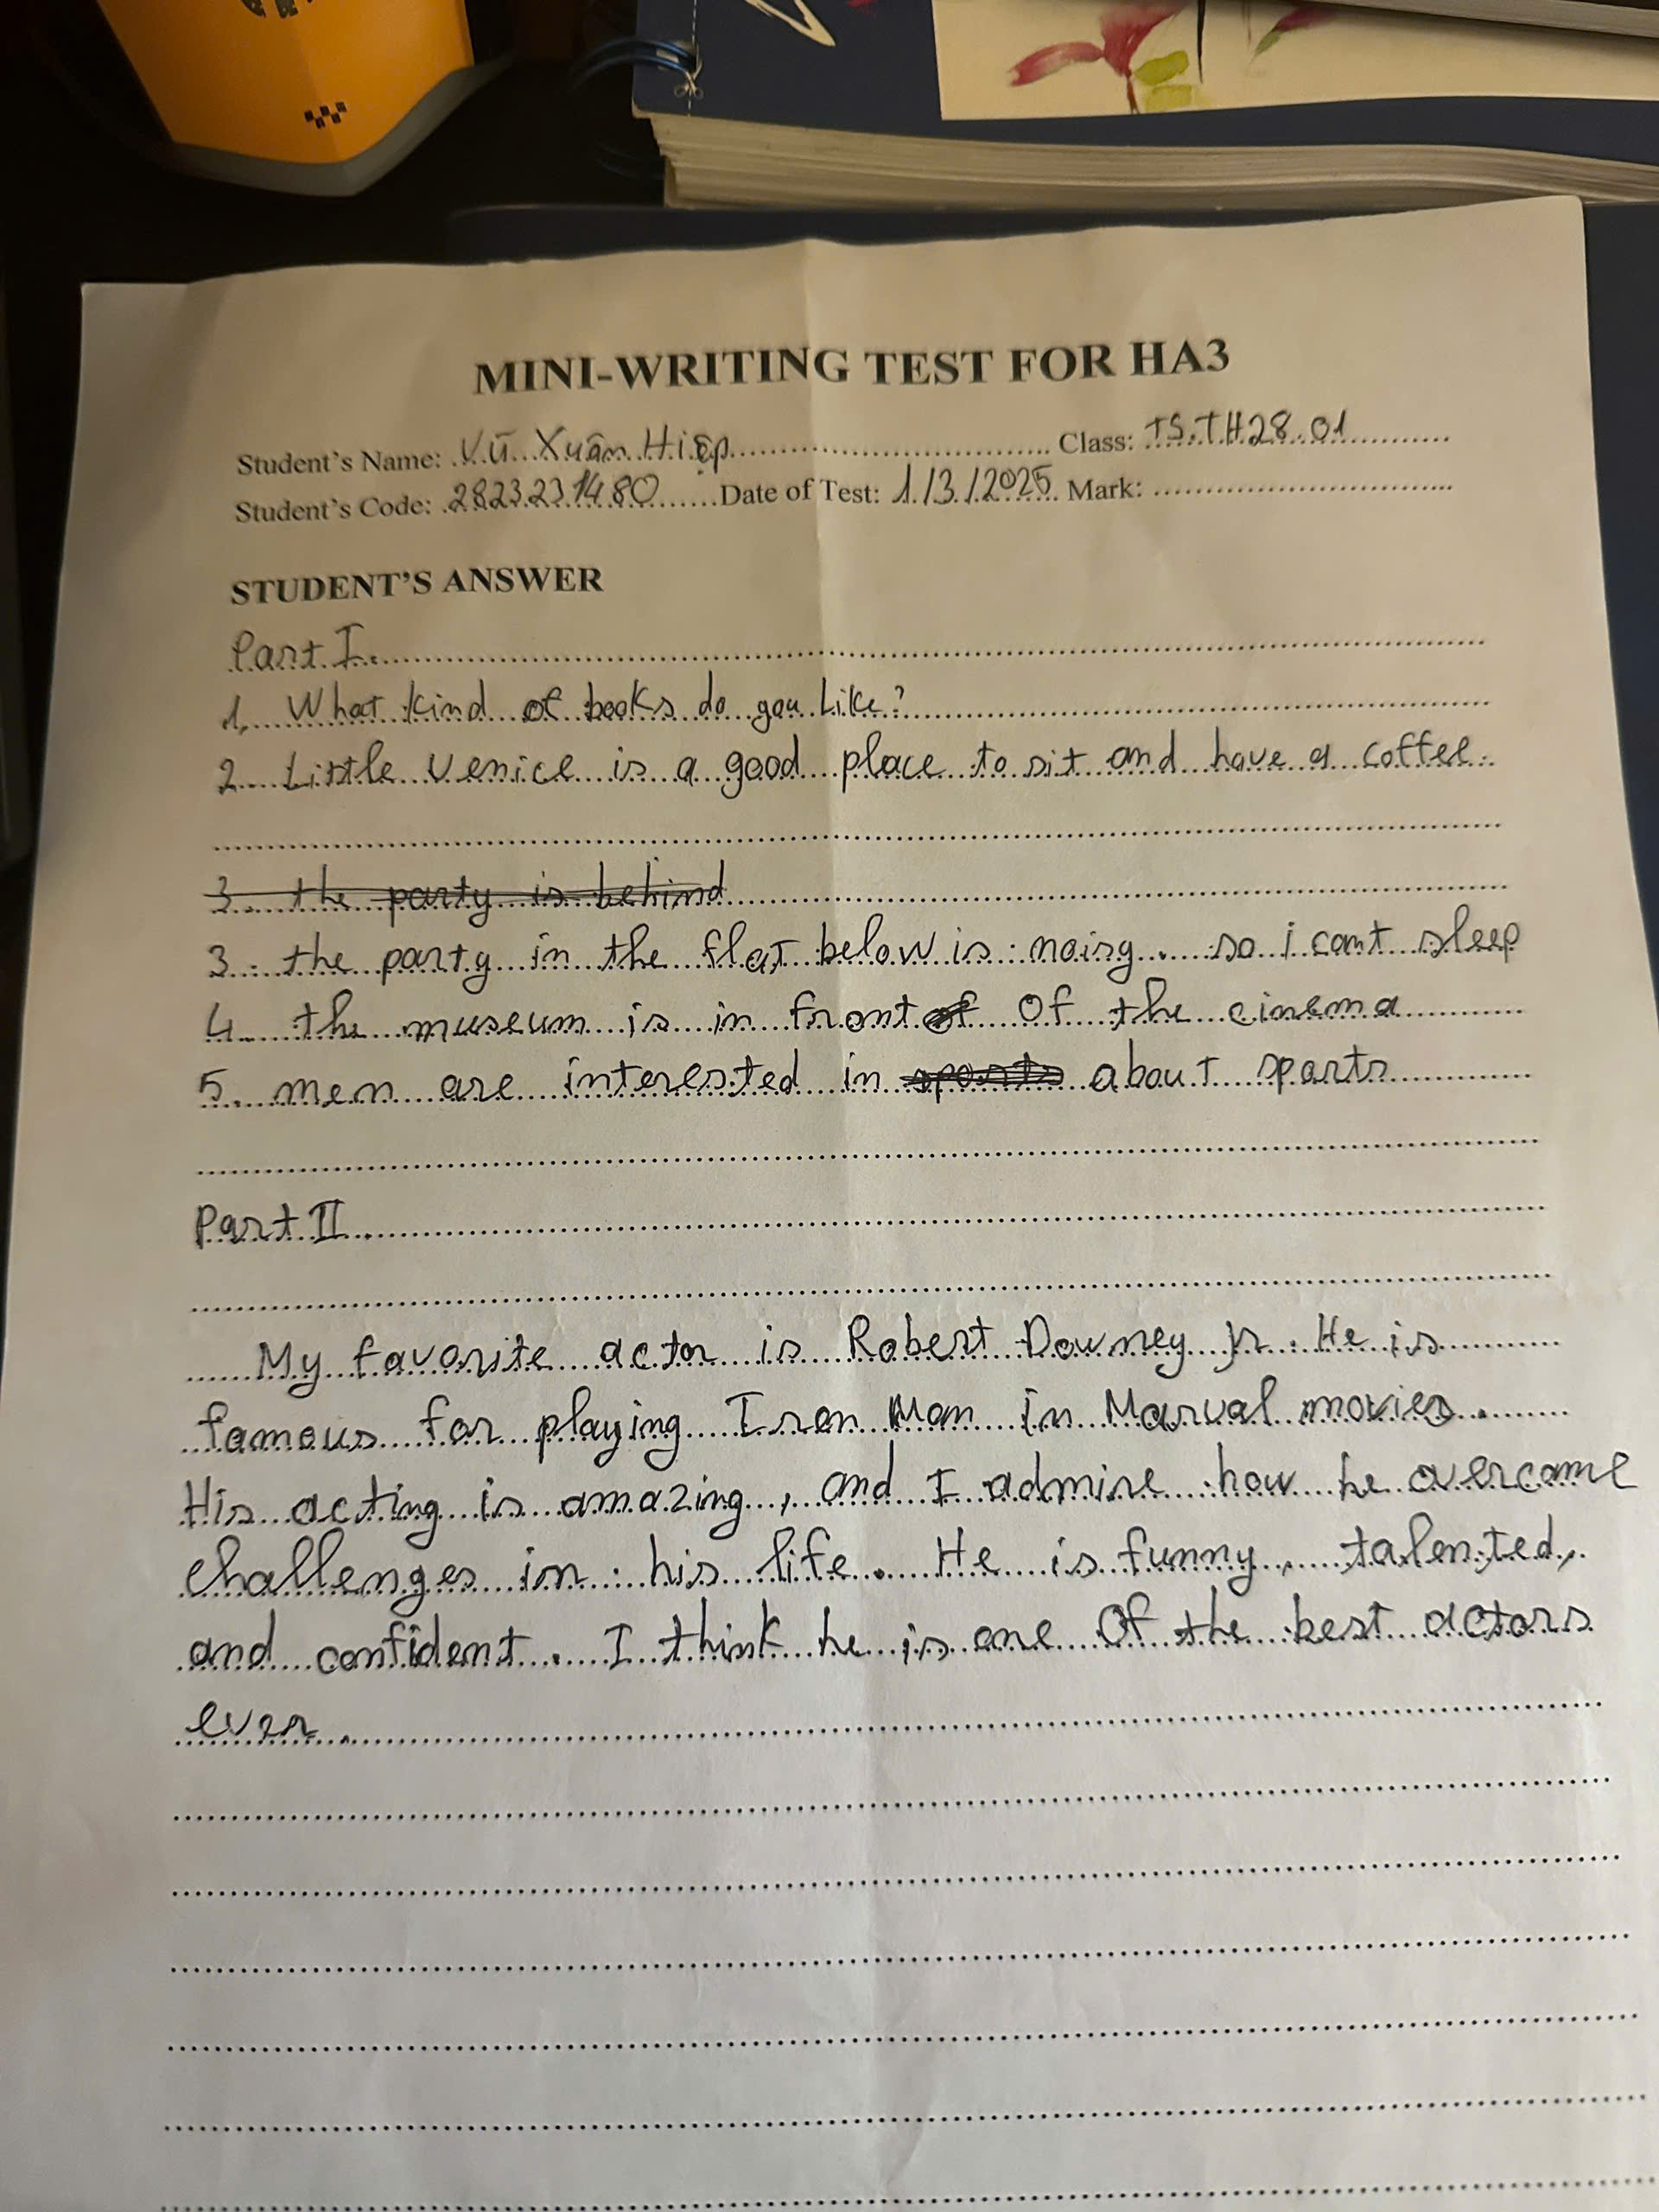 MINI-WRITING TEST FOR HA3
Student's Name: Vũ Xuân Hiệp Class: TS.TH28.01
Student's Code: 2823231480 Date of Test: 1/3/2025 Mark:
STUDENT'S ANSWER
Part I.
1. What kind of books do you like?
2. Little Venice is a good place to sit and have a coffee.
3. the party is behind
3. the party in the flat below is noisy. so i cant sleep
4. the museum is in front of of the cinema
5. men are interested in sports about sports
Part II.
My favorite actor is Robert Downey Jr. He is
famous for playing Iron Man in Marval movies.
His acting is amazing, and I admire how he overcame
challenges in his life. He is funny, talented,
and confident. I think he is one Of the best actors
ever.